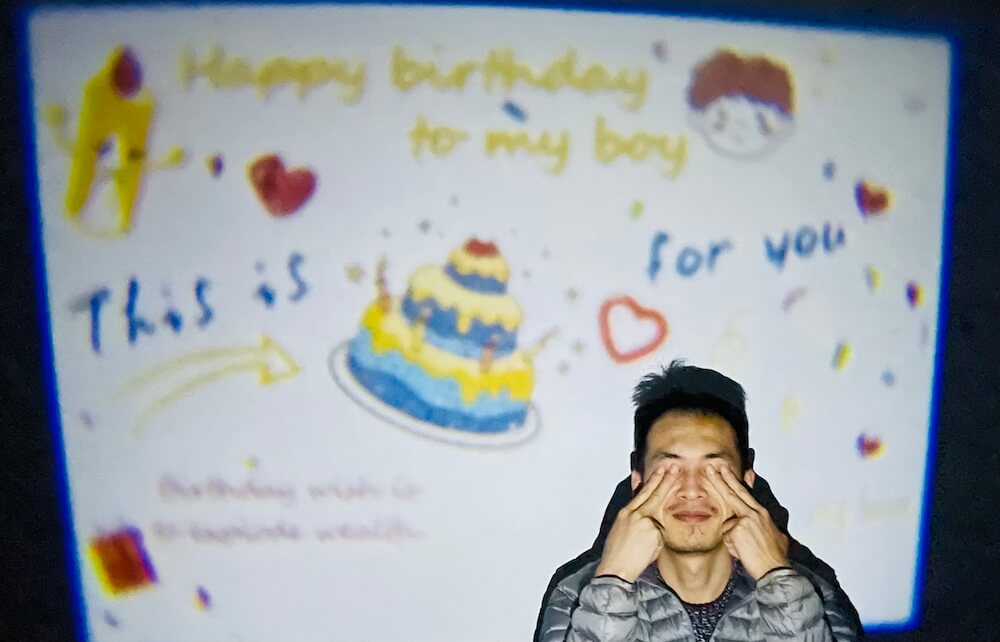 Happy birthday
to my boy
This is
for you
Birthday wish is
to explode wealth